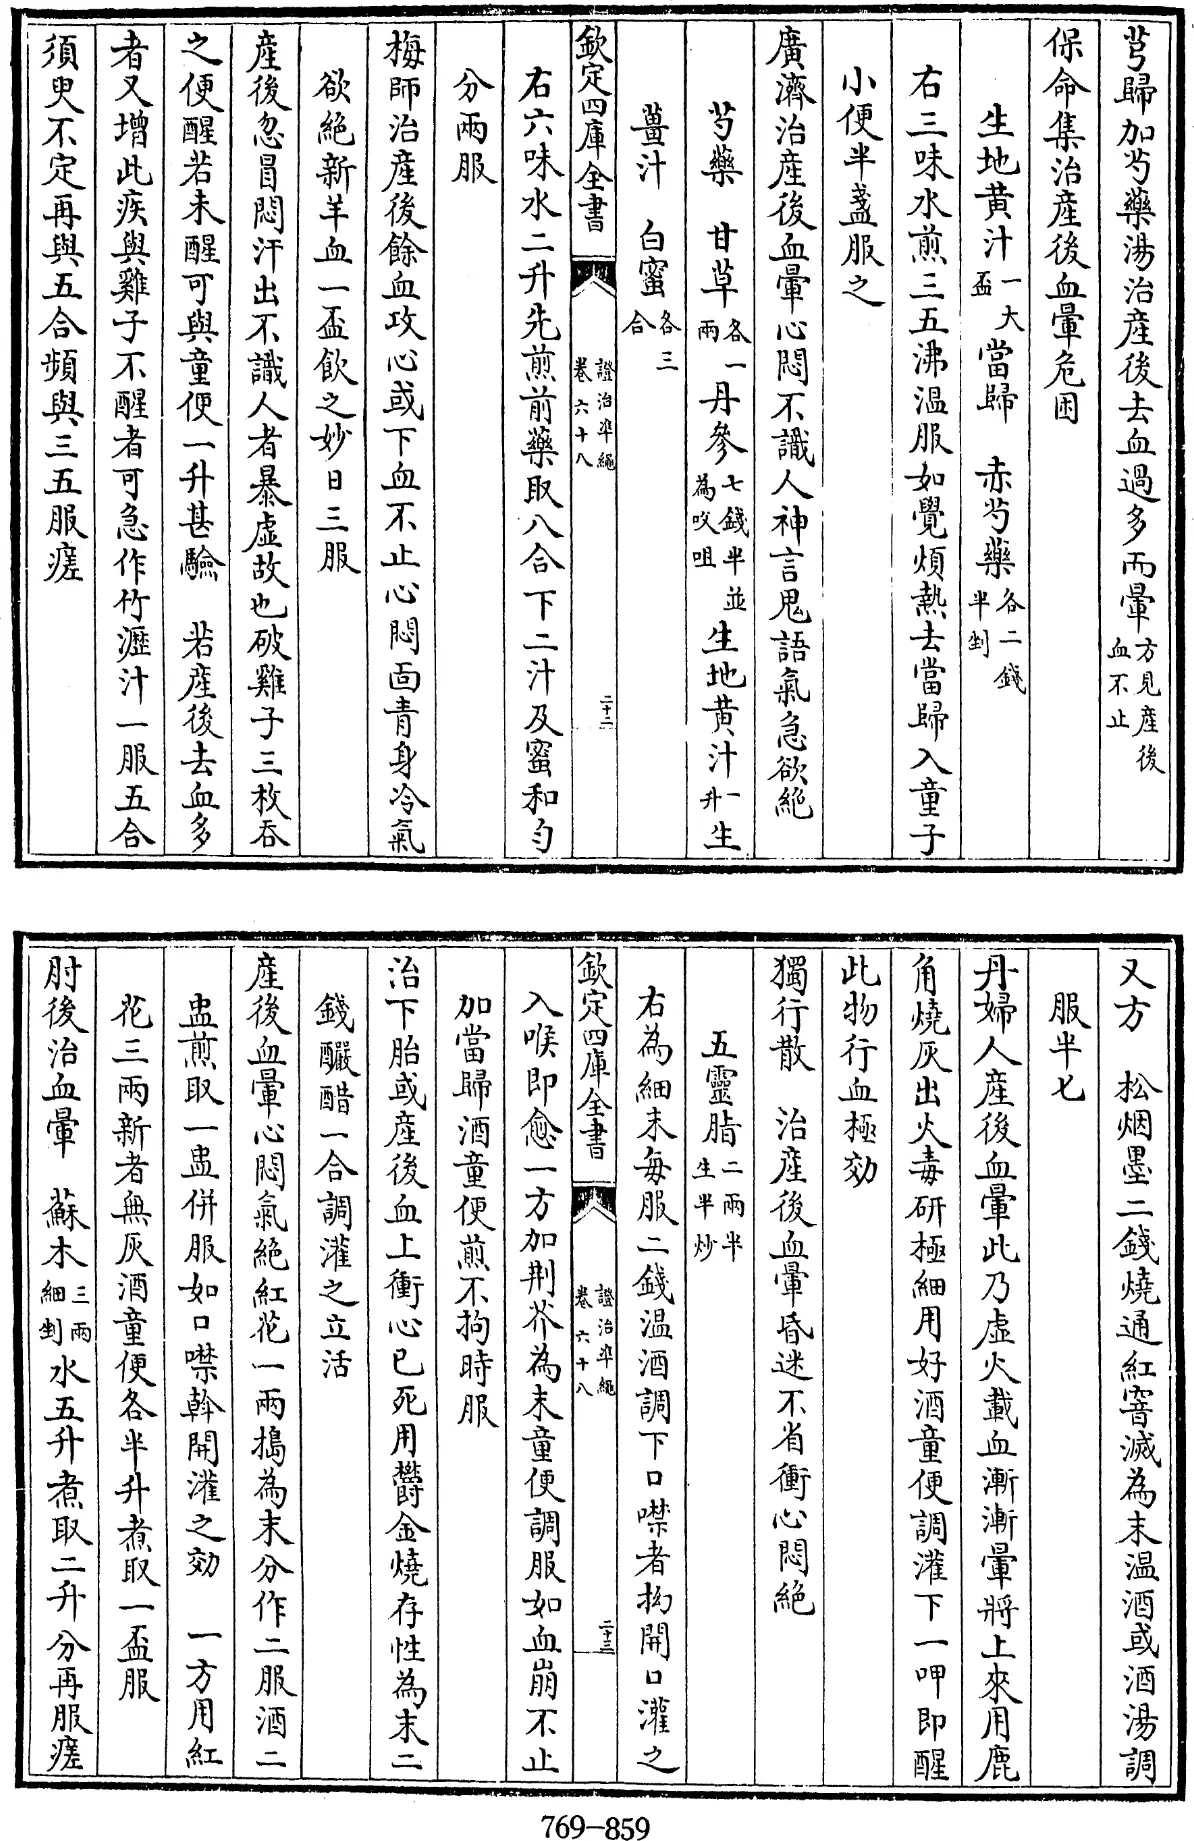 芎歸加芍藥湯治産後去血過多而暈方見産後血不止
保命集治産後血暈危困
生地黄汁一大盃當歸 赤芍藥各二錢半剉
右三味水煎三五沸温服如覺煩熱去當歸入童子
小便半盞服之
廣濟治産後血暈心悶不識人神言鬼語氣急欲絶
芍藥 甘草各一兩丹參七錢半並為㕮咀生地黄汁一升生
薑汁 白蜜各三合
欽定四庫全書 證治凖繩卷六十八 二十二
右六味水二升先煎前藥取八合下二汁及蜜和匀
分兩服
梅師治産後餘血攻心或下血不止心悶面青身冷氣
欲絶新羊血一盃飲之妙日三服
産後忽冒悶汗出不識人者暴虚故也破雞子三枚吞
之便醒若未醒可與童便一升甚驗 若産後去血多
者又增此疾與雞子不醒者可急作竹瀝汁一服五合
須臾不定再與五合頻與三五服瘥
又方 松烟墨二錢燒通紅窨滅為末温酒或酒湯調
服半匕
丹婦人産後血暈此乃虚火載血漸漸暈將上來用鹿
角燒灰出火毒研極細用好酒童便調灌下一呷即醒
此物行血極効
獨行散 治産後血暈昏迷不省衝心悶絶
五靈脂二兩半生半炒
右為細末每服二錢温酒調下口噤者抅開口灌之
欽定四庫全書 證治凖繩卷六十八 二十三
入喉即愈一方加荆芥為末童便調服如血崩不止
加當歸酒童便煎不拘時服
治下胎或産後血上衝心已死用鬱金燒存性為末二
錢釅醋一合調灌之立活
産後血暈心悶氣絶紅花一兩搗為末分作二服酒二
盅煎取一盅併服如口噤斡開灌之効 一方用紅
花三兩新者無灰酒童便各半升煮取一盃服
肘後治血暈 蘇木三兩細剉水五升煮取二升分再服瘥
769-859